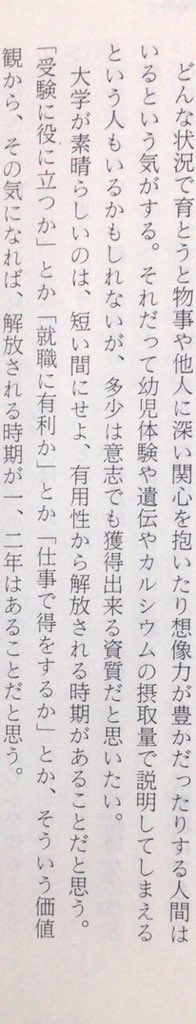 どんな状況で育とうと物事や他人に深い関心を抱いたり想像力が豊かだったりする人間は
いるという気がする。それだって幼児体験や遺伝やカルシウムの摂取量で説明してしまえる
という人もいるかもしれないが、多少は意志でも獲得出来る資質だと思いたい。
　大学が素晴らしいのは、短い間にせよ、有用性から解放される時期があることだと思う。
「受験に役に立つか」とか「就職に有利か」とか「仕事で得をするか」とか、そういう価値
観から、その気になれば、解放される時期が一、二年はあることだと思う。